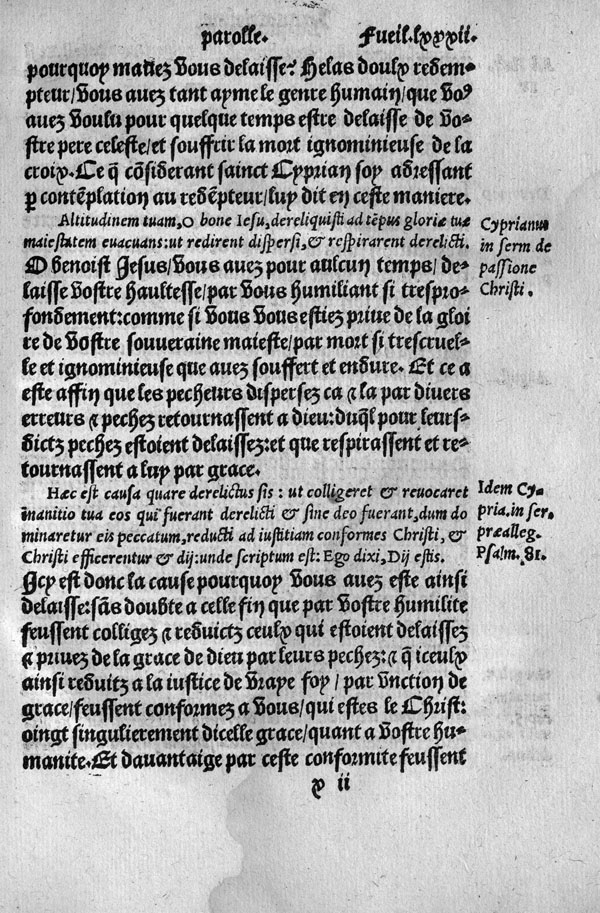 parolle. Fueil.lxxxii.
pourquoy mauez vous delaisse? Helas doulx redem-
pteur/vous auez tant ayme le genre humain/que voꝰ
auez voulu pour quelque temps estre delaisse de vo-
stre pere celeste/et souffrir la mort ignominieuse de la
croix. Ce q̃ cõsiderant sainct Cyprian soy adressant
ꝑ contẽplation au redẽpteur/luy dit en ceste maniere.
Altitudinem tuam, O bone Iesu, dereliquisti ad tẽpus gloriæ tuæ
maiestatem euacuans: ut redirent dispersi, & respirarent derelicti.
Cyprianus
in serm de
passione
Christi.
O benoist Jesus/vous auez pour aulcun temps/de-
laisse vostre haultesse/par vous humiliant si trespro-
fondement: comme si vous vous estiez priue de la gloi
re de vostre souueraine maieste/par mort si trescruel-
le et ignominieuse que auez souffert et endure. Et ce a
este affin que les pecheurs dispersez ca ⁊ la par diuers
erreurs ⁊ pechez retournassent a dieu: duq̃l pour leurs-
dictz pechez estoient delaissez: et que respirassent et re-
tournassent a luy par grace.
Hæc est causa quare derelictus sis : ut colligeret & reuocaret
inanitio tua eos qui fuerant derelicti & sine deo fuerant, dum do
minaretur eis peccatum, reducti ad iustitiam conformes Christi, &
Christi efficerentur & dij: unde scriptum est: Ego dixi, Dij estis.
Idem Cy-
pria. in ser.
præalleg.
Psalm. 81.
Icy est donc la cause pourquoy vous auez este ainsi
delaisse: sãs doubte a celle fin que par vostre humilite
feussent colligez ⁊ reduictz ceulx qui estoient delaissez
⁊ priuez de la grace de dieu par leurs pechez: ⁊ q̃ iceulx
ainsi reduitz a la iustice de vraye foy / par vnction de
grace/feussent conformez a vous/qui estes le Christ:
oingt singulierement dicelle grace/quant a vostre hu-
manite. Et dauantaige par ceste conformite feussent
x ii